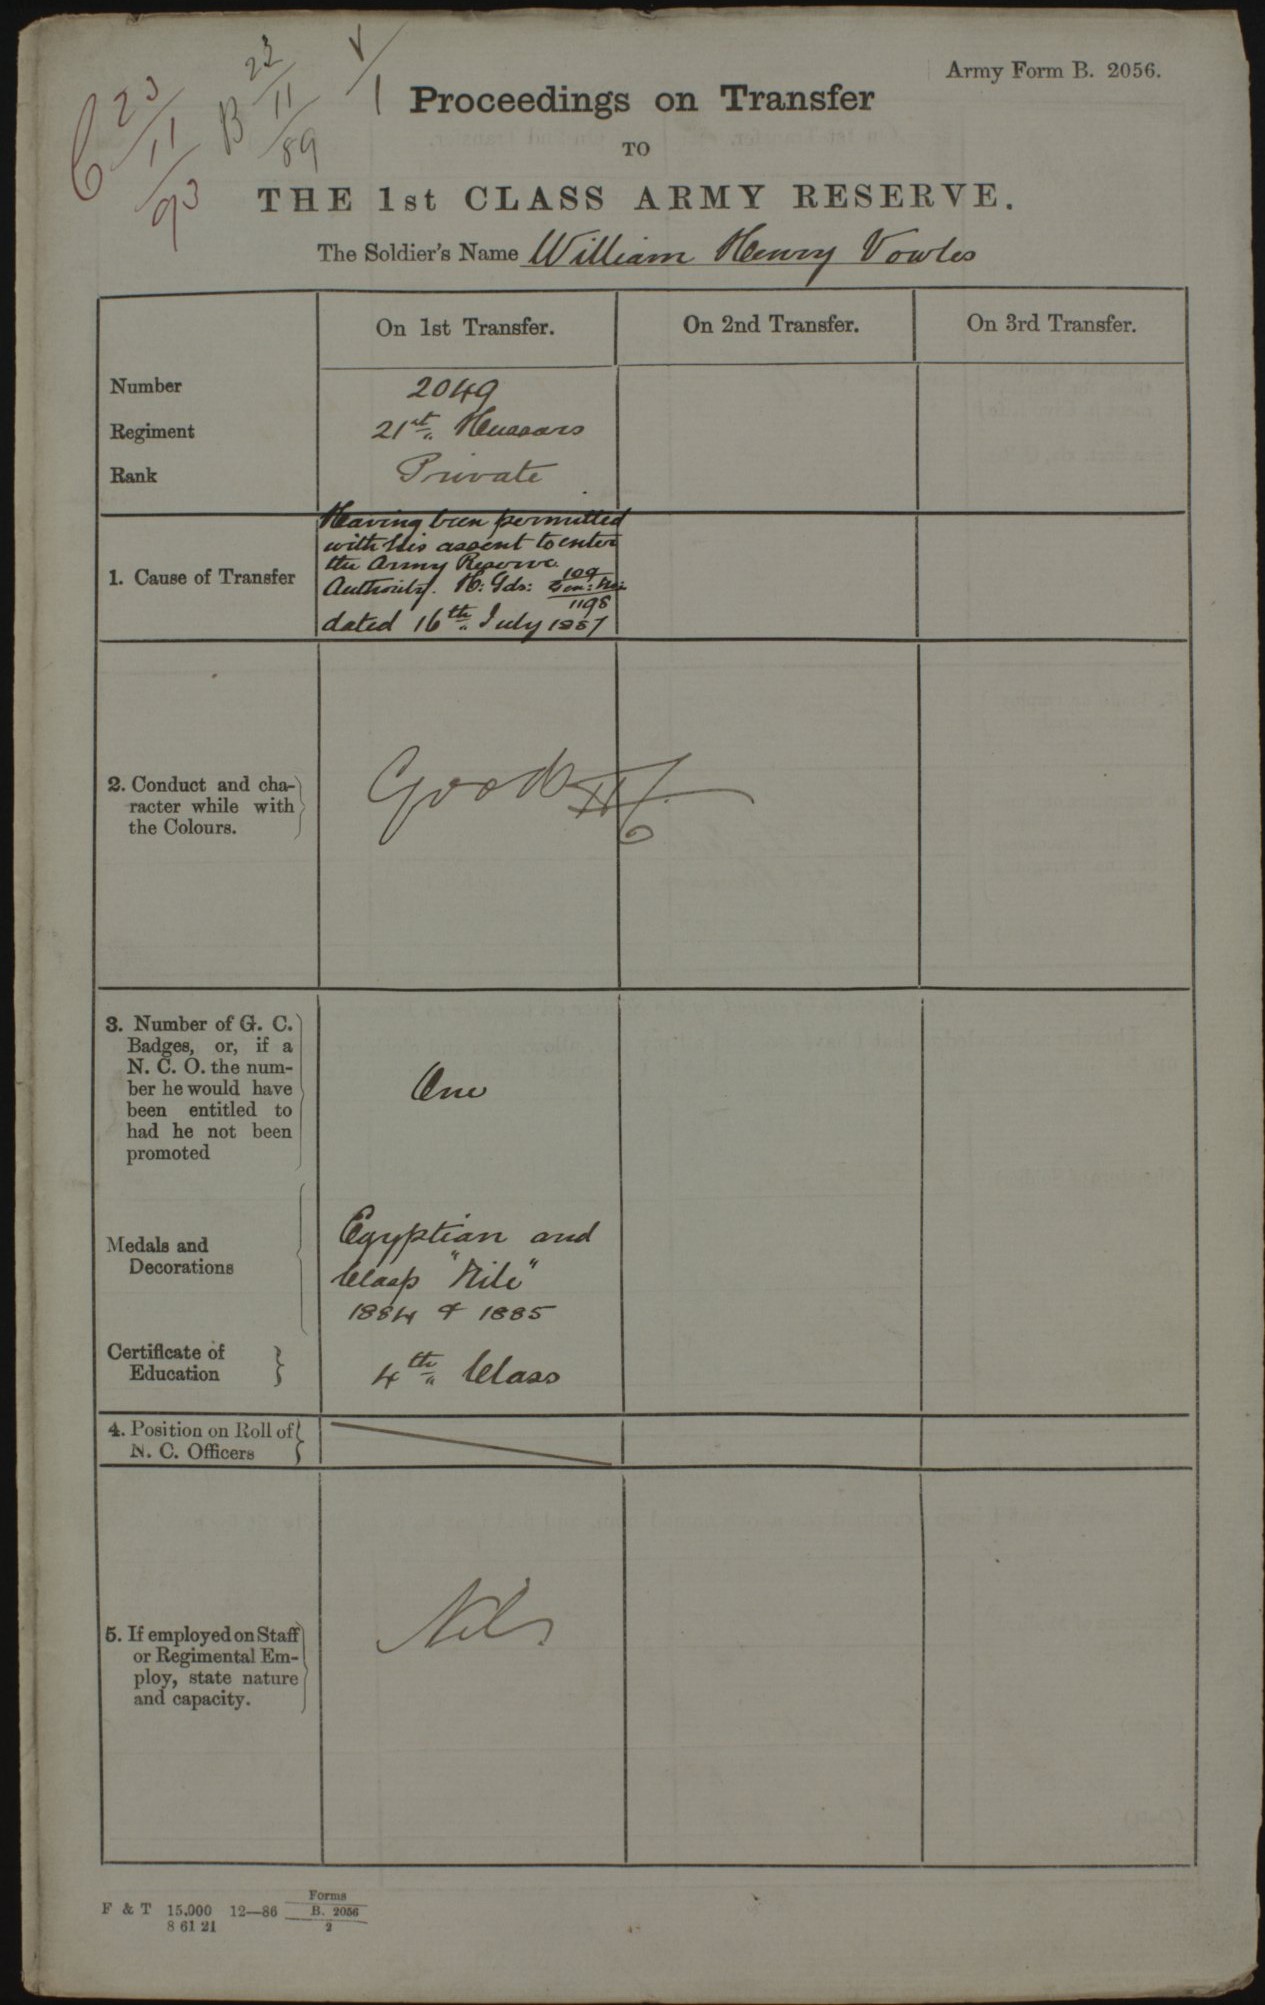 Army Form B. 2056.
C 23/11/93
B 23/11/89
V/1
Proceedings on Transfer
TO
THE 1st CLASS ARMY RESERVE.
The Soldier's Name William Henry Vowles
On 1st Transfer.
On 2nd Transfer.
On 3rd Transfer.
Number
2049
Regiment
21st Hussars
Rank
Private
1. Cause of Transfer
Having been permitted
with his assent to enter
the Army Reserve.
Authority. H: Gds: 109
Gen: No:
1198
dated 16th July 1887
2. Conduct and cha-
racter while with
the Colours.
Good
3. Number of G. C.
Badges, or, if a
N. C. O. the num-
ber he would have
been entitled to
had he not been
promoted
One
Medals and
Decorations
Egyptian and
Clasp "Nile"
1884 & 1885
Certificate of
Education
4th Class
4. Position on Roll of
N. C. Officers
5. If employed on Staff
or Regimental Em-
ploy, state nature
and capacity.
Nil
F & T 15,000 12—86 Forms
B. 2056
8 61 21
2